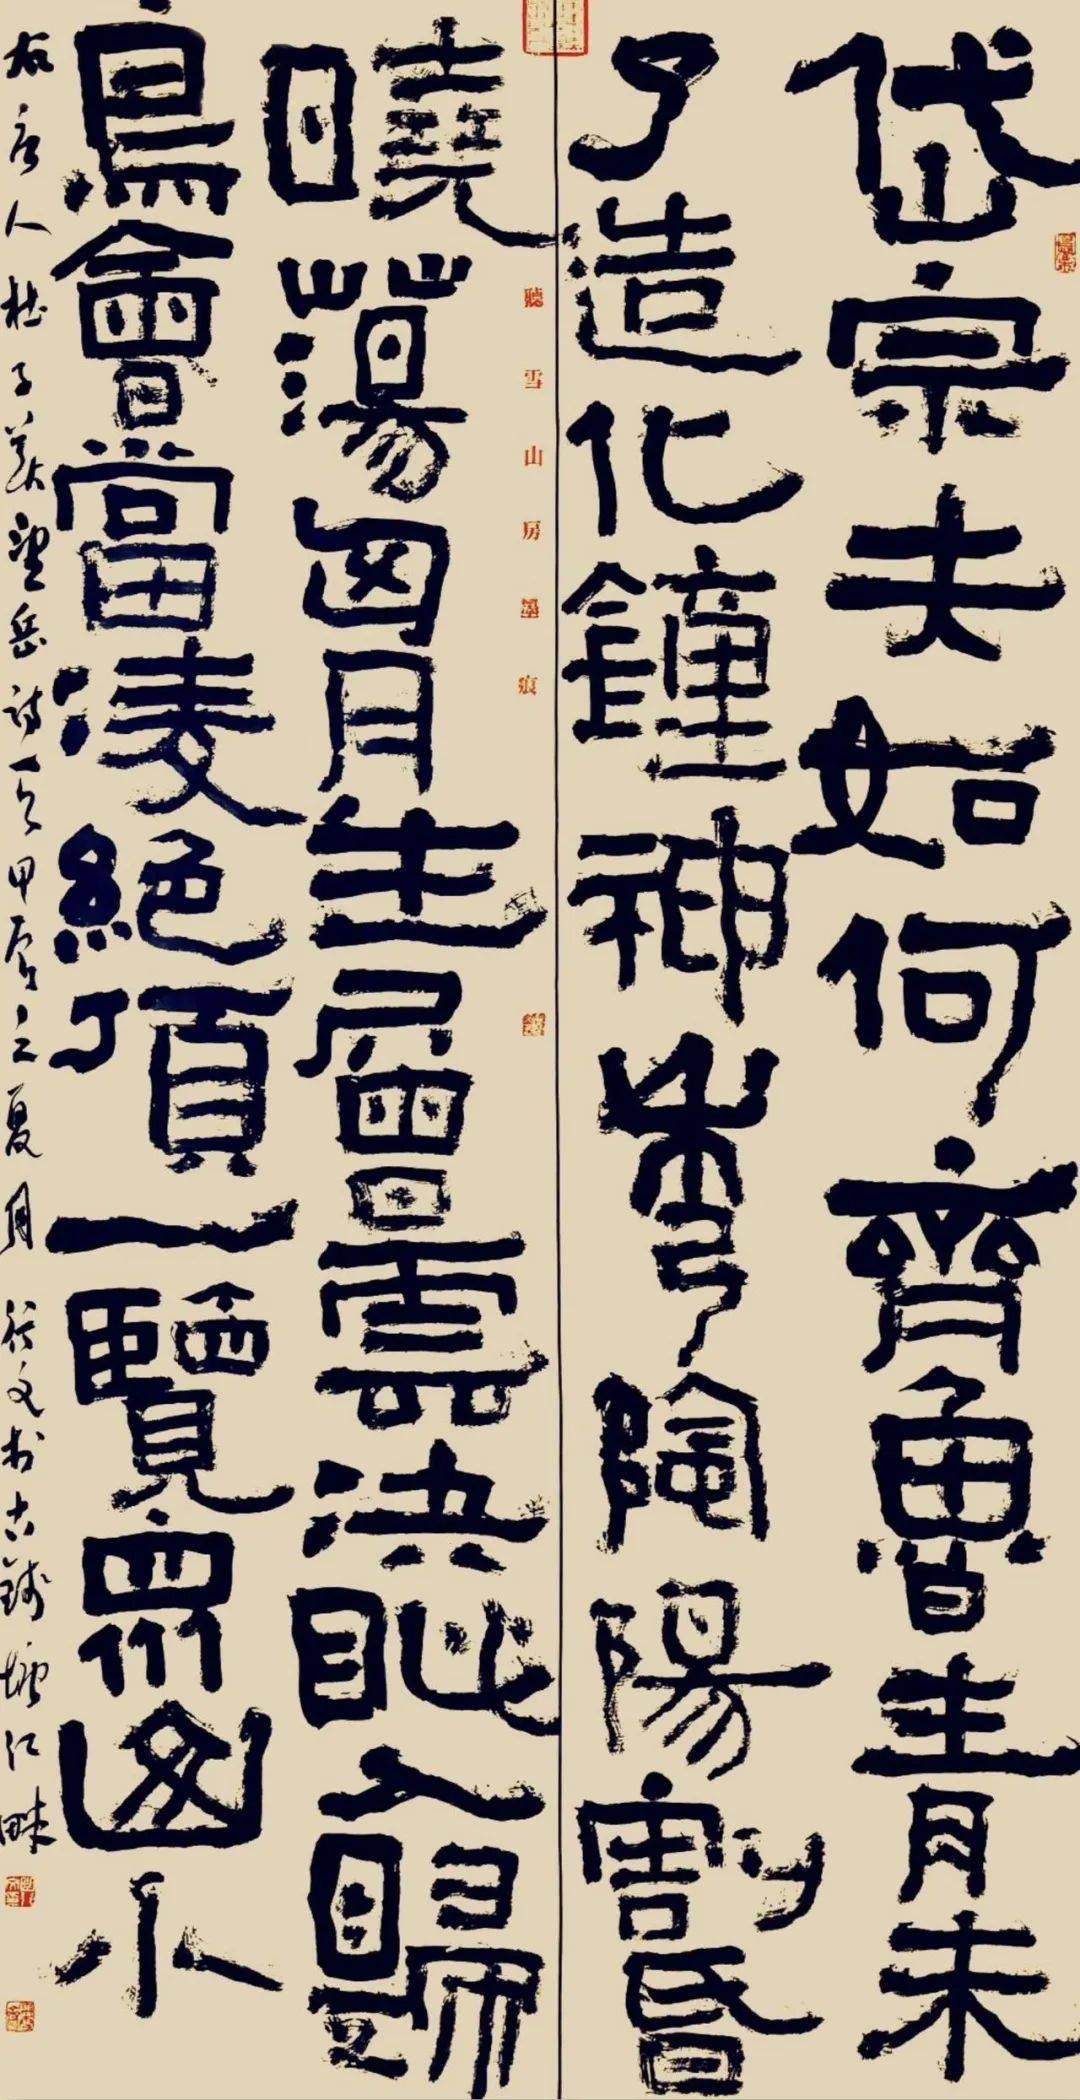 岱宗夫如何齊魯青未
了造化鐘神秀陰陽割昏
聽雪山房墨痕
曉蕩胷生層雲決眦入歸
鳥會當凌絕頂一覽眾山小
右唐人杜子美望岳詩一首甲辰之夏月行文於古錢塘江畔